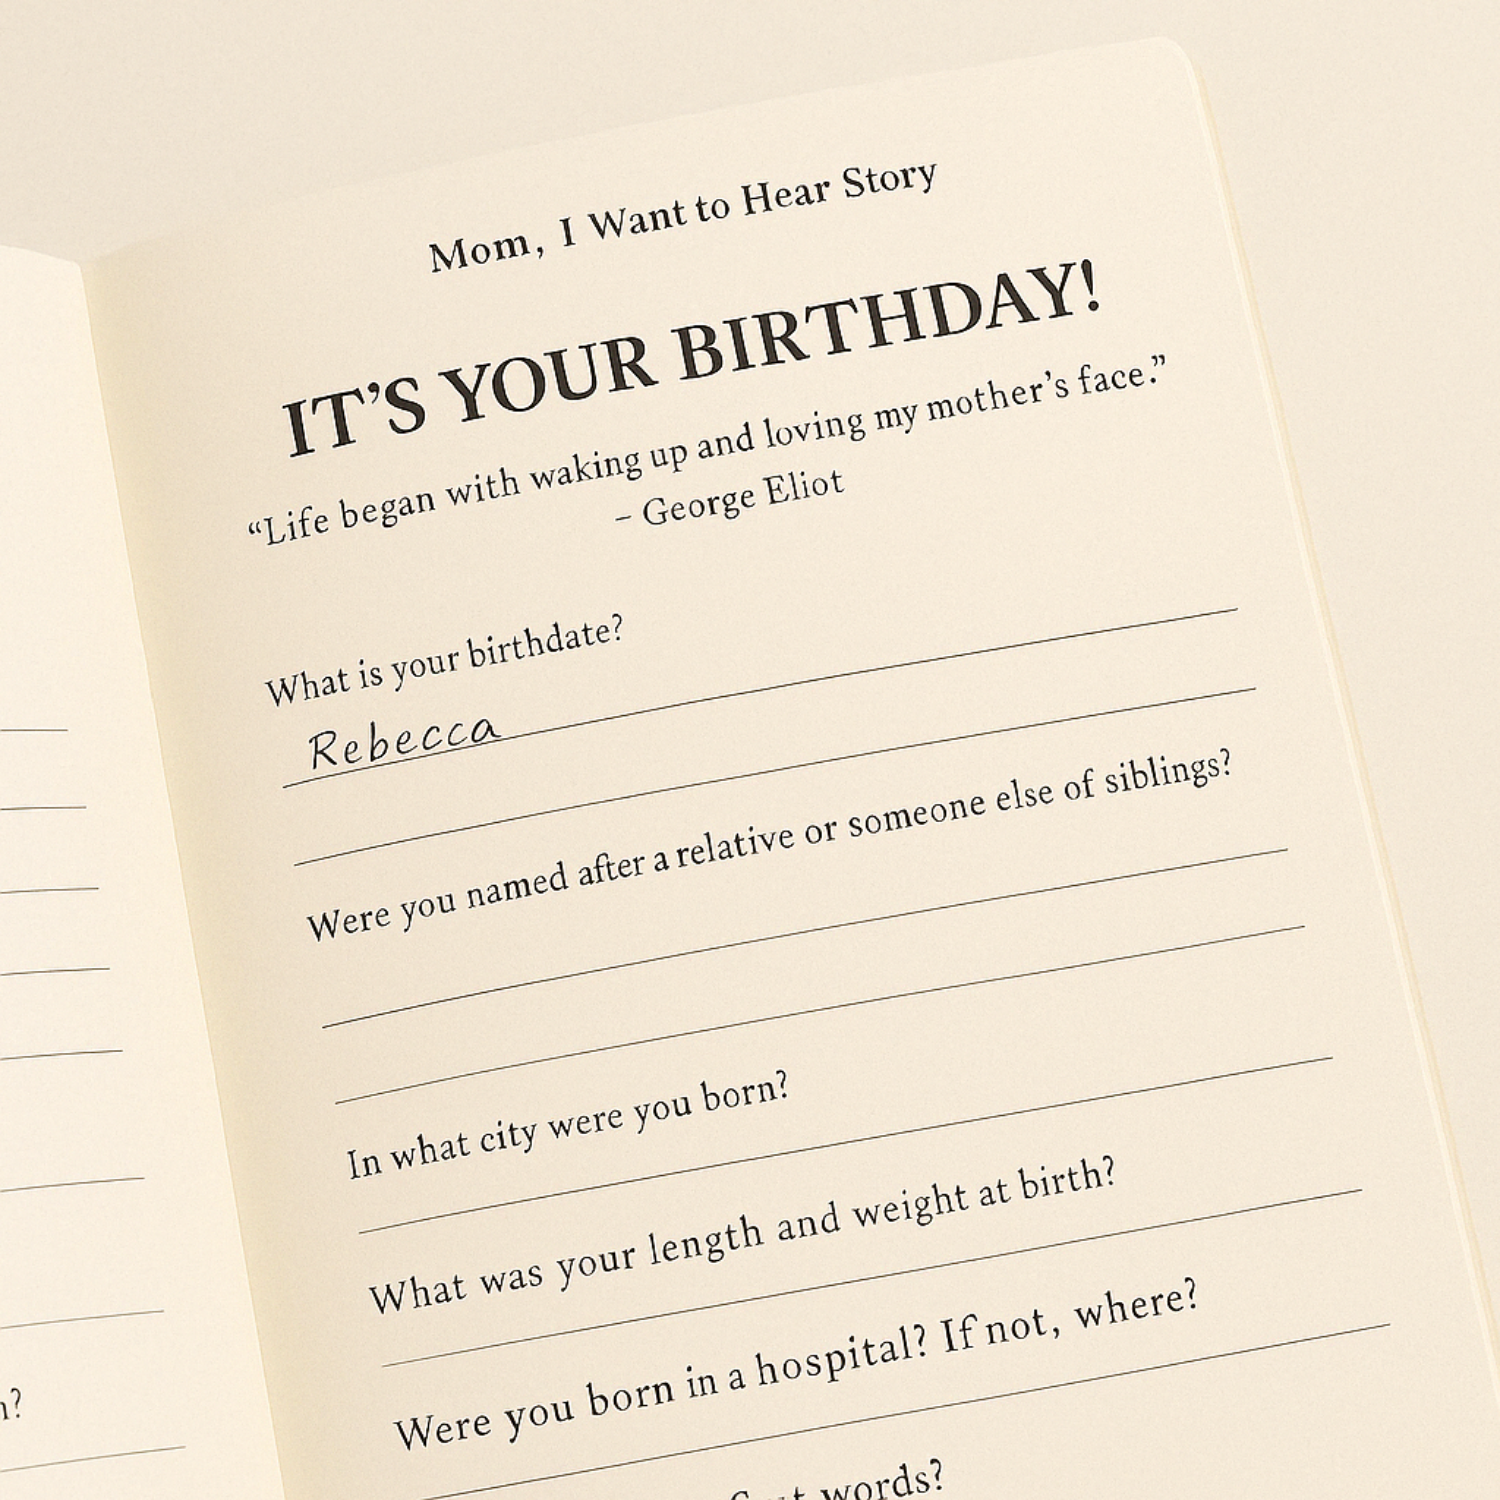 Mom, I Want to Hear Story
IT'S YOUR BIRTHDAY!
“Life began with waking up and loving my mother’s face.”
– George Eliot
What is your birthdate?
Rebecca
Were you named after a relative or someone else of siblings?
In what city were you born?
What was your length and weight at birth?
Were you born in a hospital? If not, where?
words?